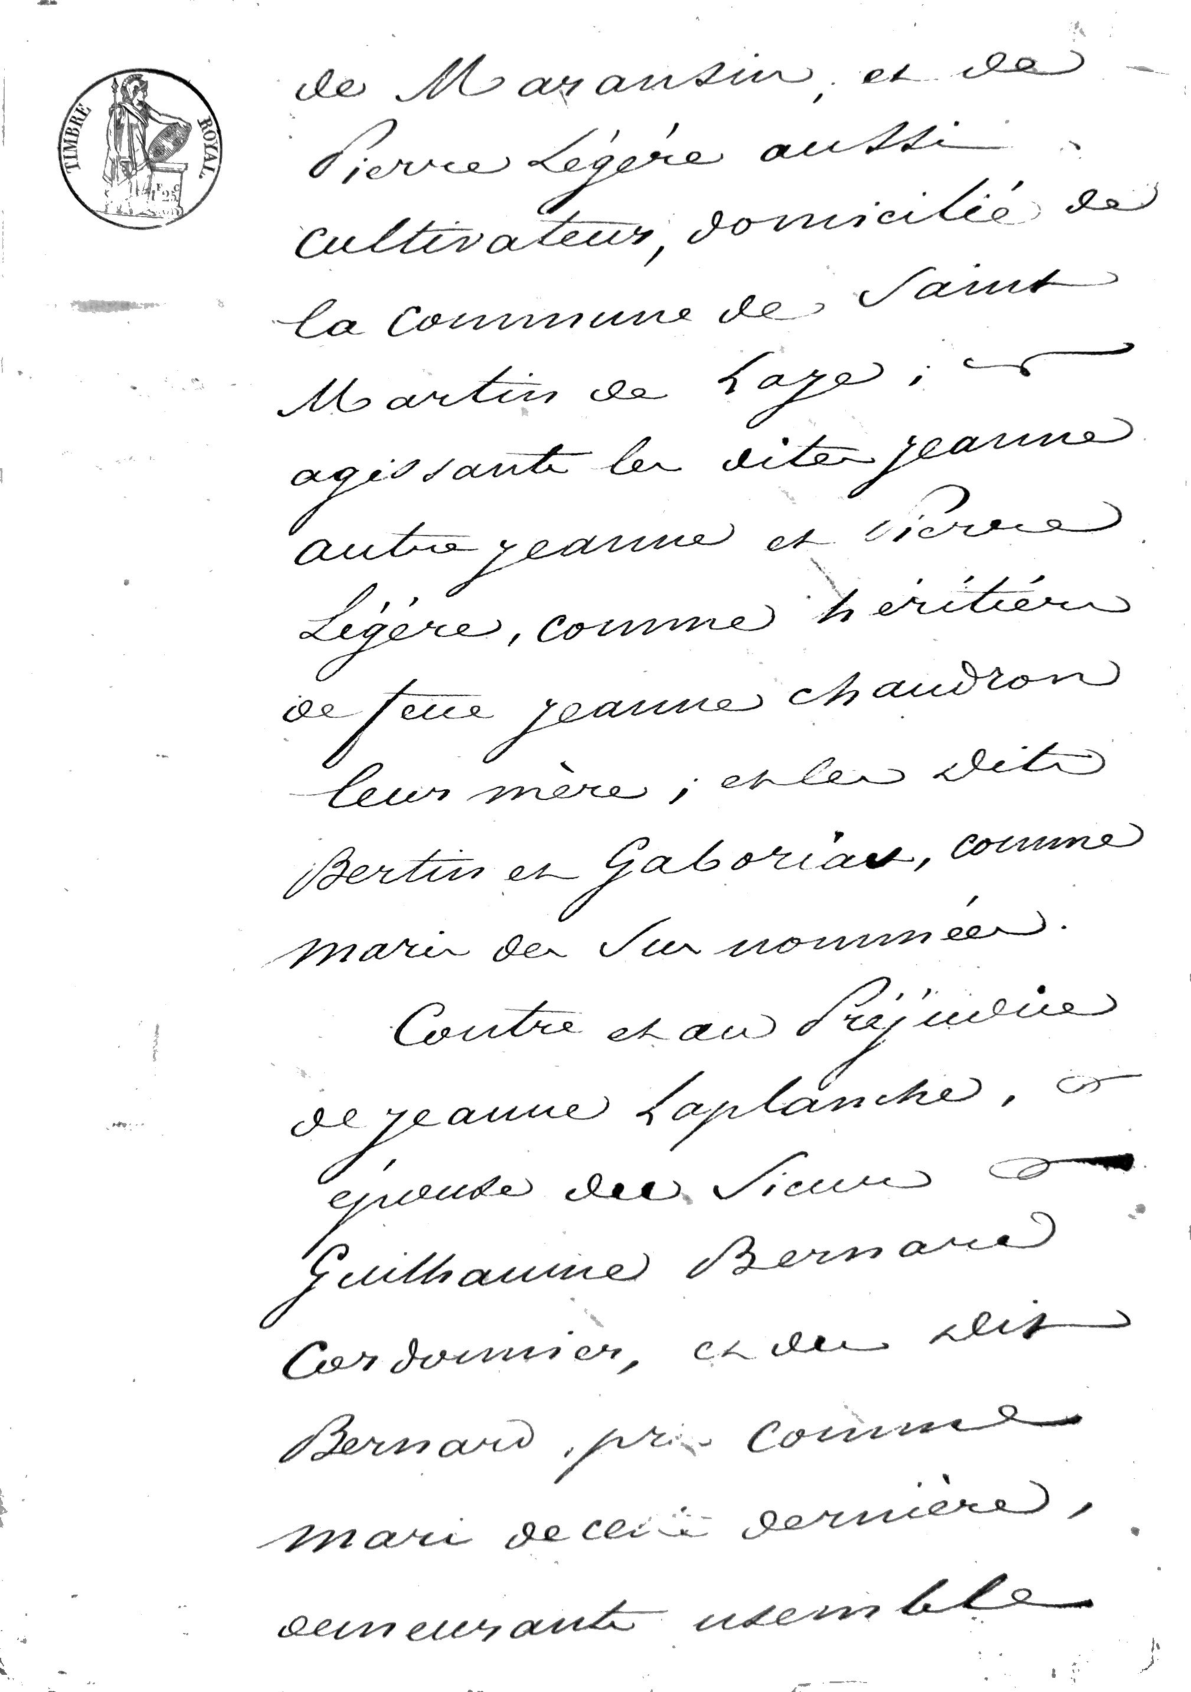 TIMBRE ROYAL.
de Maransin, et de
Pierre Légére aussi
cultivateur, domicilié de
la commune de Saint
Martin de Laye ;
agissants les dites jeanne
autre jeanne et Pierre
Légére, comme héritiérs
de feue jeanne chaudron
leur mère ; et les dits
Bertin et Gaboriau, comme
maris des sus nommées.
Contre et au Préjudice
de jeanne Laplanche,
épouse du sieur
Guilhaume Bernard
Cordonnier, et du dit
Bernard, pris comme
mari de cette dernière,
demeurants ensemble